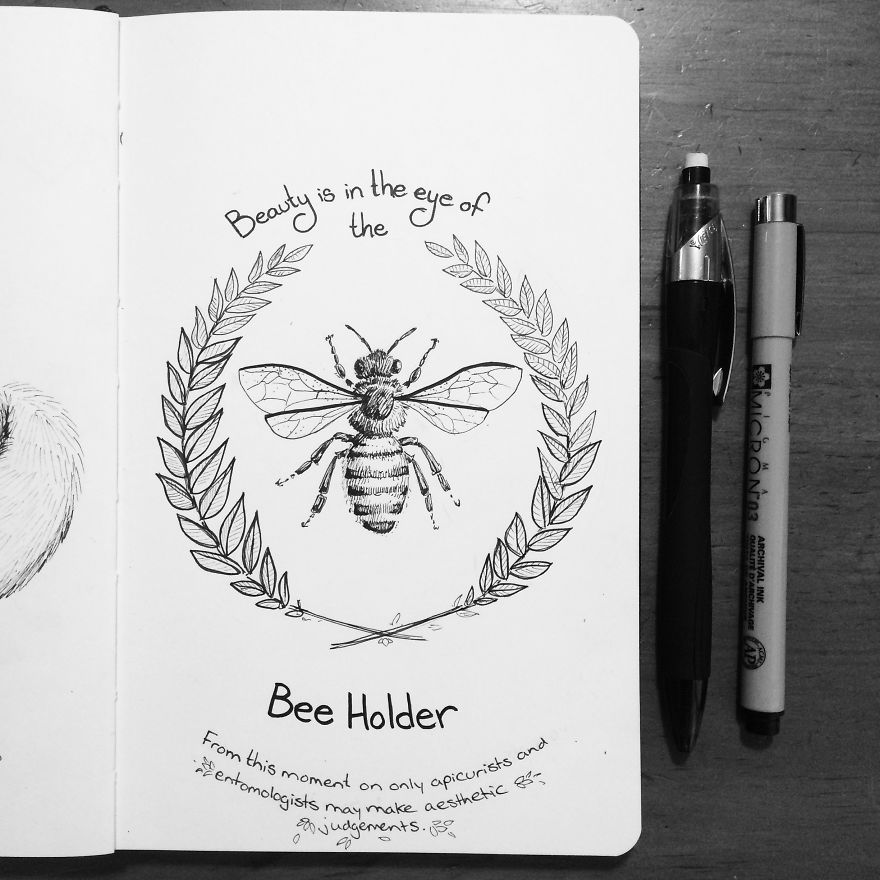 Beauty is in the eye of
the
Bee Holder
From this moment on only apicurists and
entomologists may make aesthetic
judgements.
PIGMA
MICRON 03
ARCHIVAL INK
QUALITÉ D'ARCHIVAGE
AP